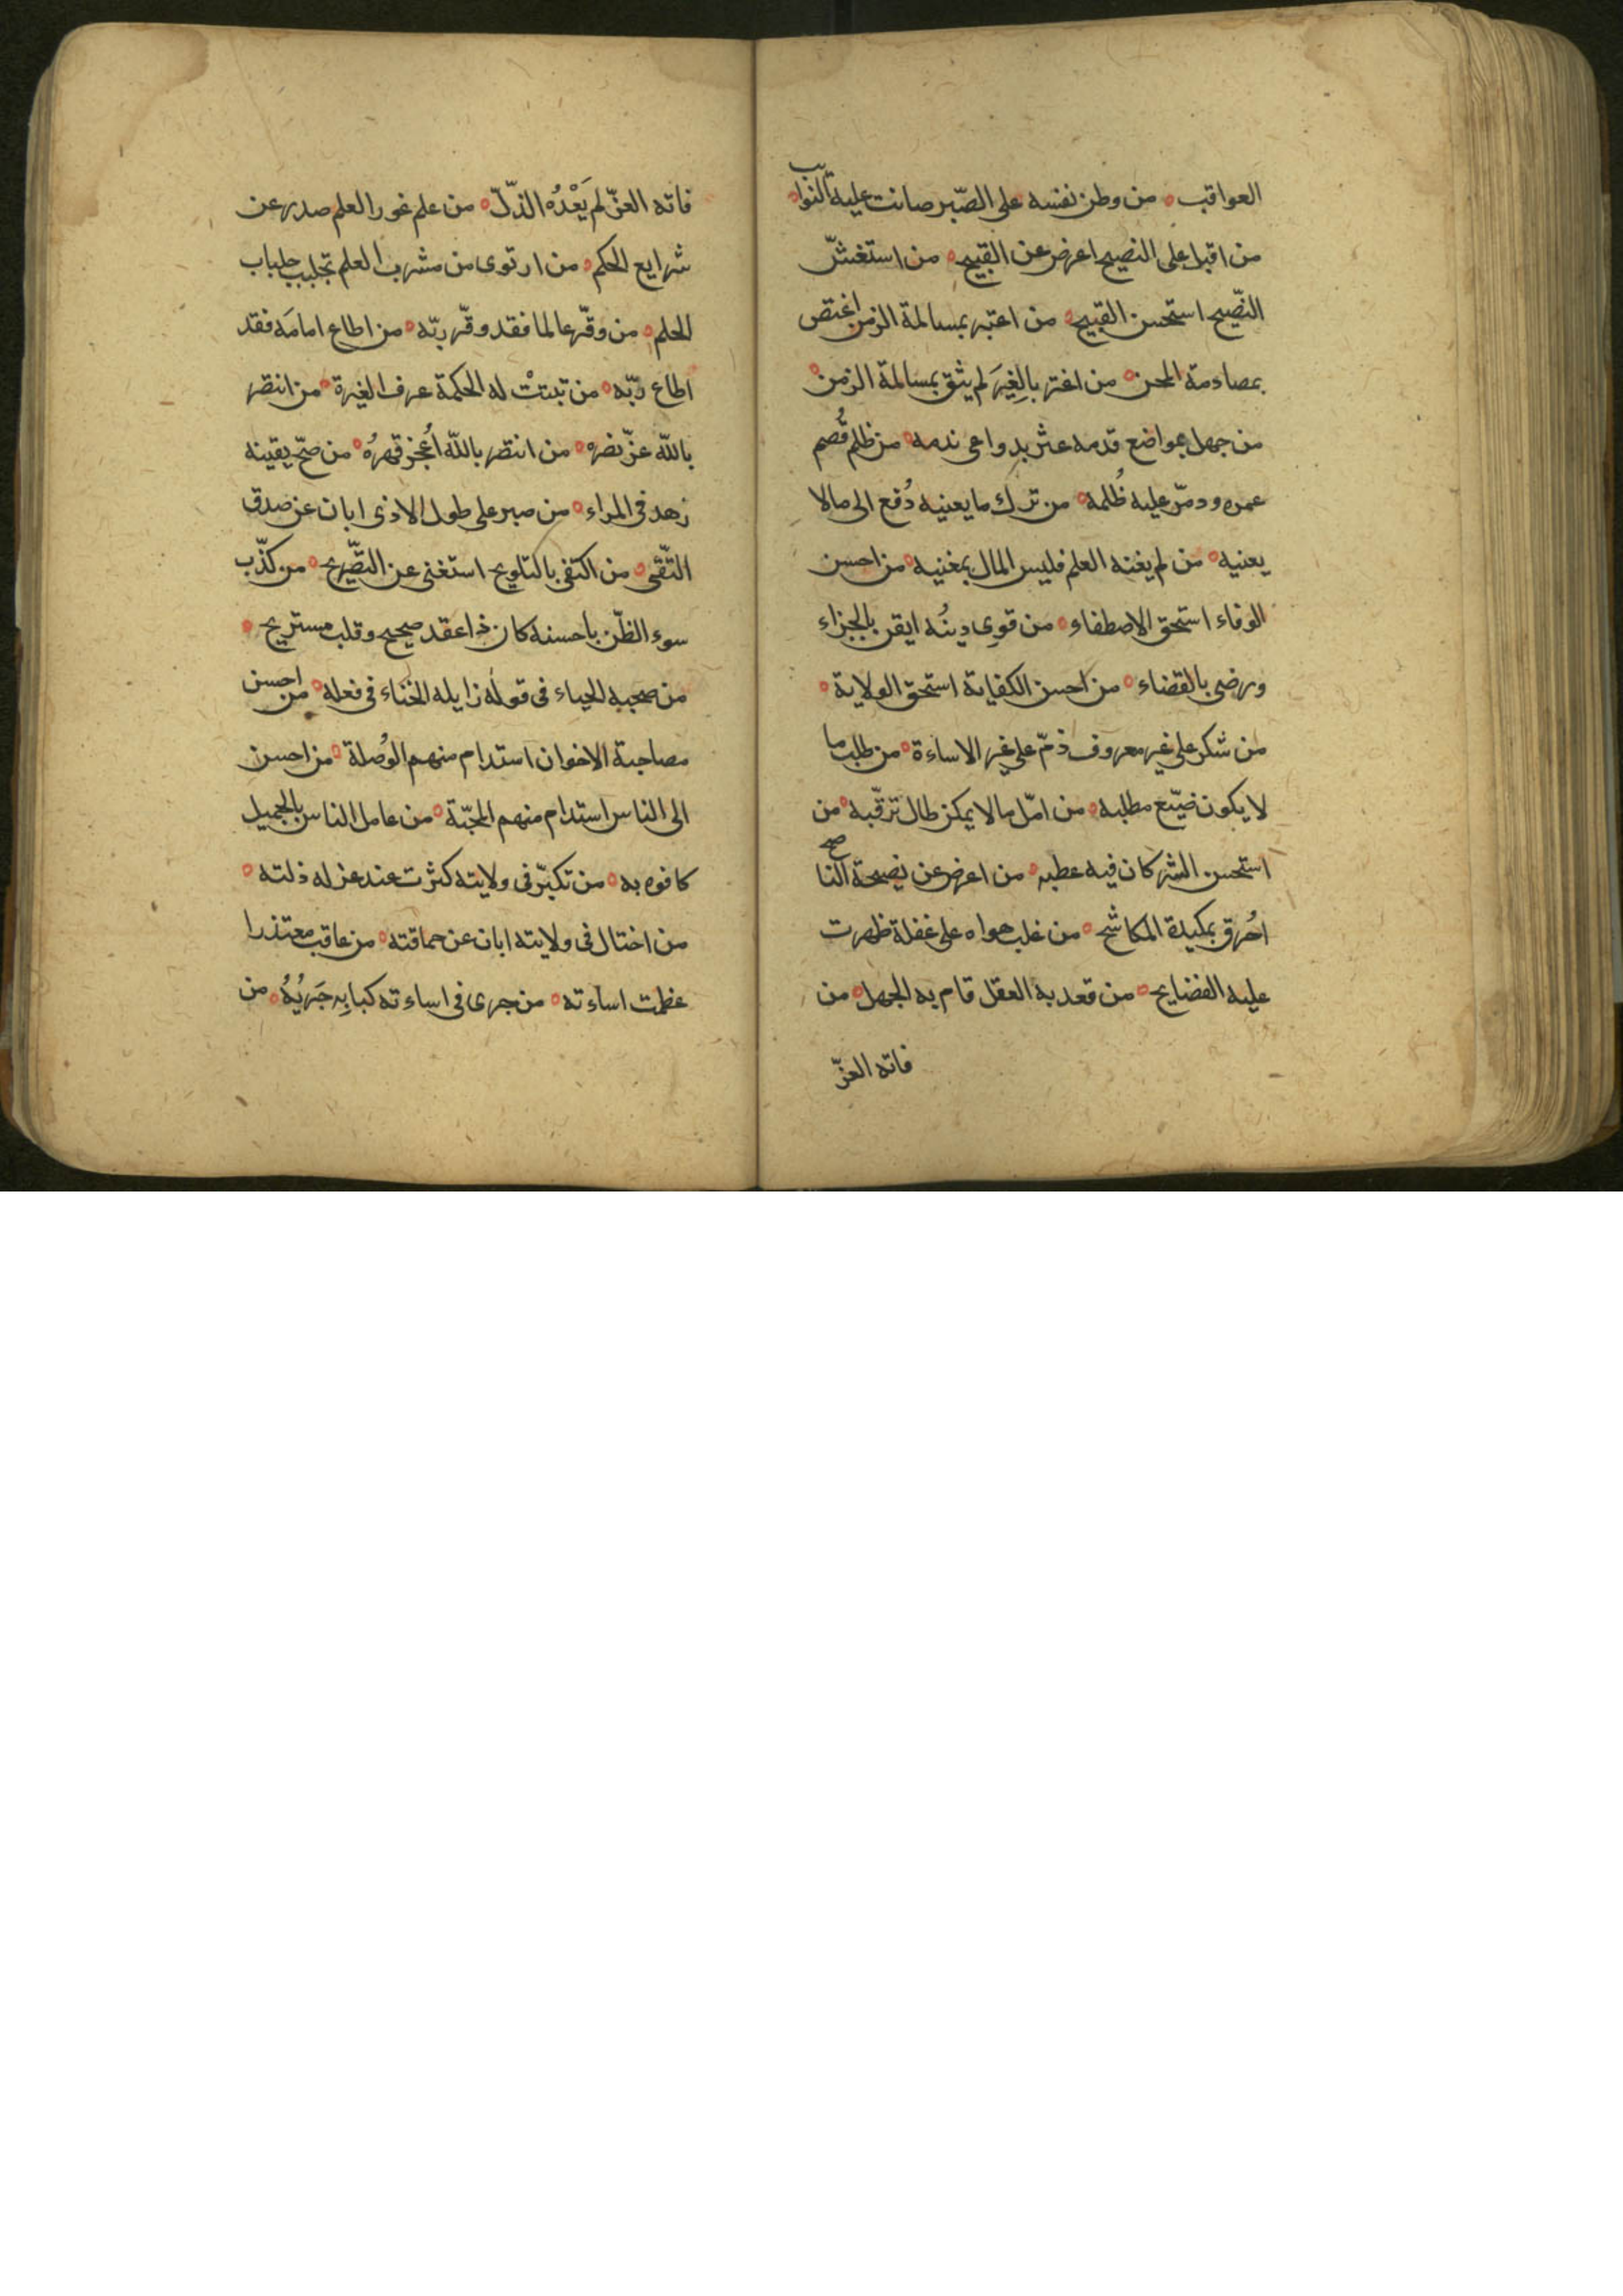 العواقب ۰ من وطن نفسه على الصّبر صانت عليه النوايب ۰
من اقبل على النصيح اعرض عن القبيح ۰ من استغشّ
النّصيح استحسن القبيح ۰ من اعتبر بمسالمة الزمن اغتص
بمصادمة المحن ۰ من اغتر بالِغِيَر لم يثق بمسالمة الزمن ۰
من جهل مواضع قدمه عثر بدواعى ندمه ۰ من ظلم قُصم
عمره ودمّر عليه ظُلمه ۰ من ترك ما يعنيه دُفع الى مالا
يعنيه ۰ من لم يغنه العلم فليس المال بمغنيه ۰ من احسن
الوفاء استحق الاصطفاء ۰ من قوى دينُه ايقن بالجزاء
ورضى بالقضاء ۰ من احسن الكفاية استحق الولاية ۰
من شكر على غير معروف ذمّ على غير الاساءة ۰ من طلب ما
لا يكون ضيّع مطلبه ۰ من امّل مالا يمكن طال ترقّبه ۰ من
استحسن الشر كان فيه عطبه ۰ من اعرض عن نصيحة الناصح
اُحرق بمكيدة المكاشح ۰ من غلب هواه على غفلة ظهرت
عليه الفضايح ۰ من قعد به العقل قام به الجهل ۰ من
فاته العزّ
فاته العزّ لم يَعْدُه الذّلّ ۰ من علم غور العلم صدر عن
شرايع الحكم ۰ من ارتوى من مشرب العلم تجلبب جلباب
الحلم ۰ من وقّر عالما فقد وقّر ربّه ۰ من اطاع امامَه فقد
اطاع ربّه ۰ من تبتتْ له الحكمة عرف الغيرة ۰ من انتصر
بالله عزّ نصره ۰ من انتصر بالله اُعْجز قهرُهُ ۰ من صحّ يقينه
زهد فى المراء ۰ من صبر على طول الاذى ابان عن صدق
التّقى ۰ من اكتفى بالتلويح استغنى عن التّصريح ۰ من كذّب
سوء الظّن باحسنه كان ذا عقد صحيح وقلب مستريح ۰
من صحبه الحياء فى قوله زايله الخناء فى فعله ۰ من احسن
مصاحبة الاخوان استدام منهم الوُصلة ۰ من احسن
الى الناس استدام منهم المحبّة ۰ من عامل الناس بالجميل
كافوه به ۰ من تكبّر فى ولايته كثرت عند عزله ذلته ۰
من اختال فى ولايته ابان عن حماقته ۰ من عاقب معتذرا
عظمت اساءته ۰ من جرى فى اساءته كبا بِه جَريُهُ ۰ من